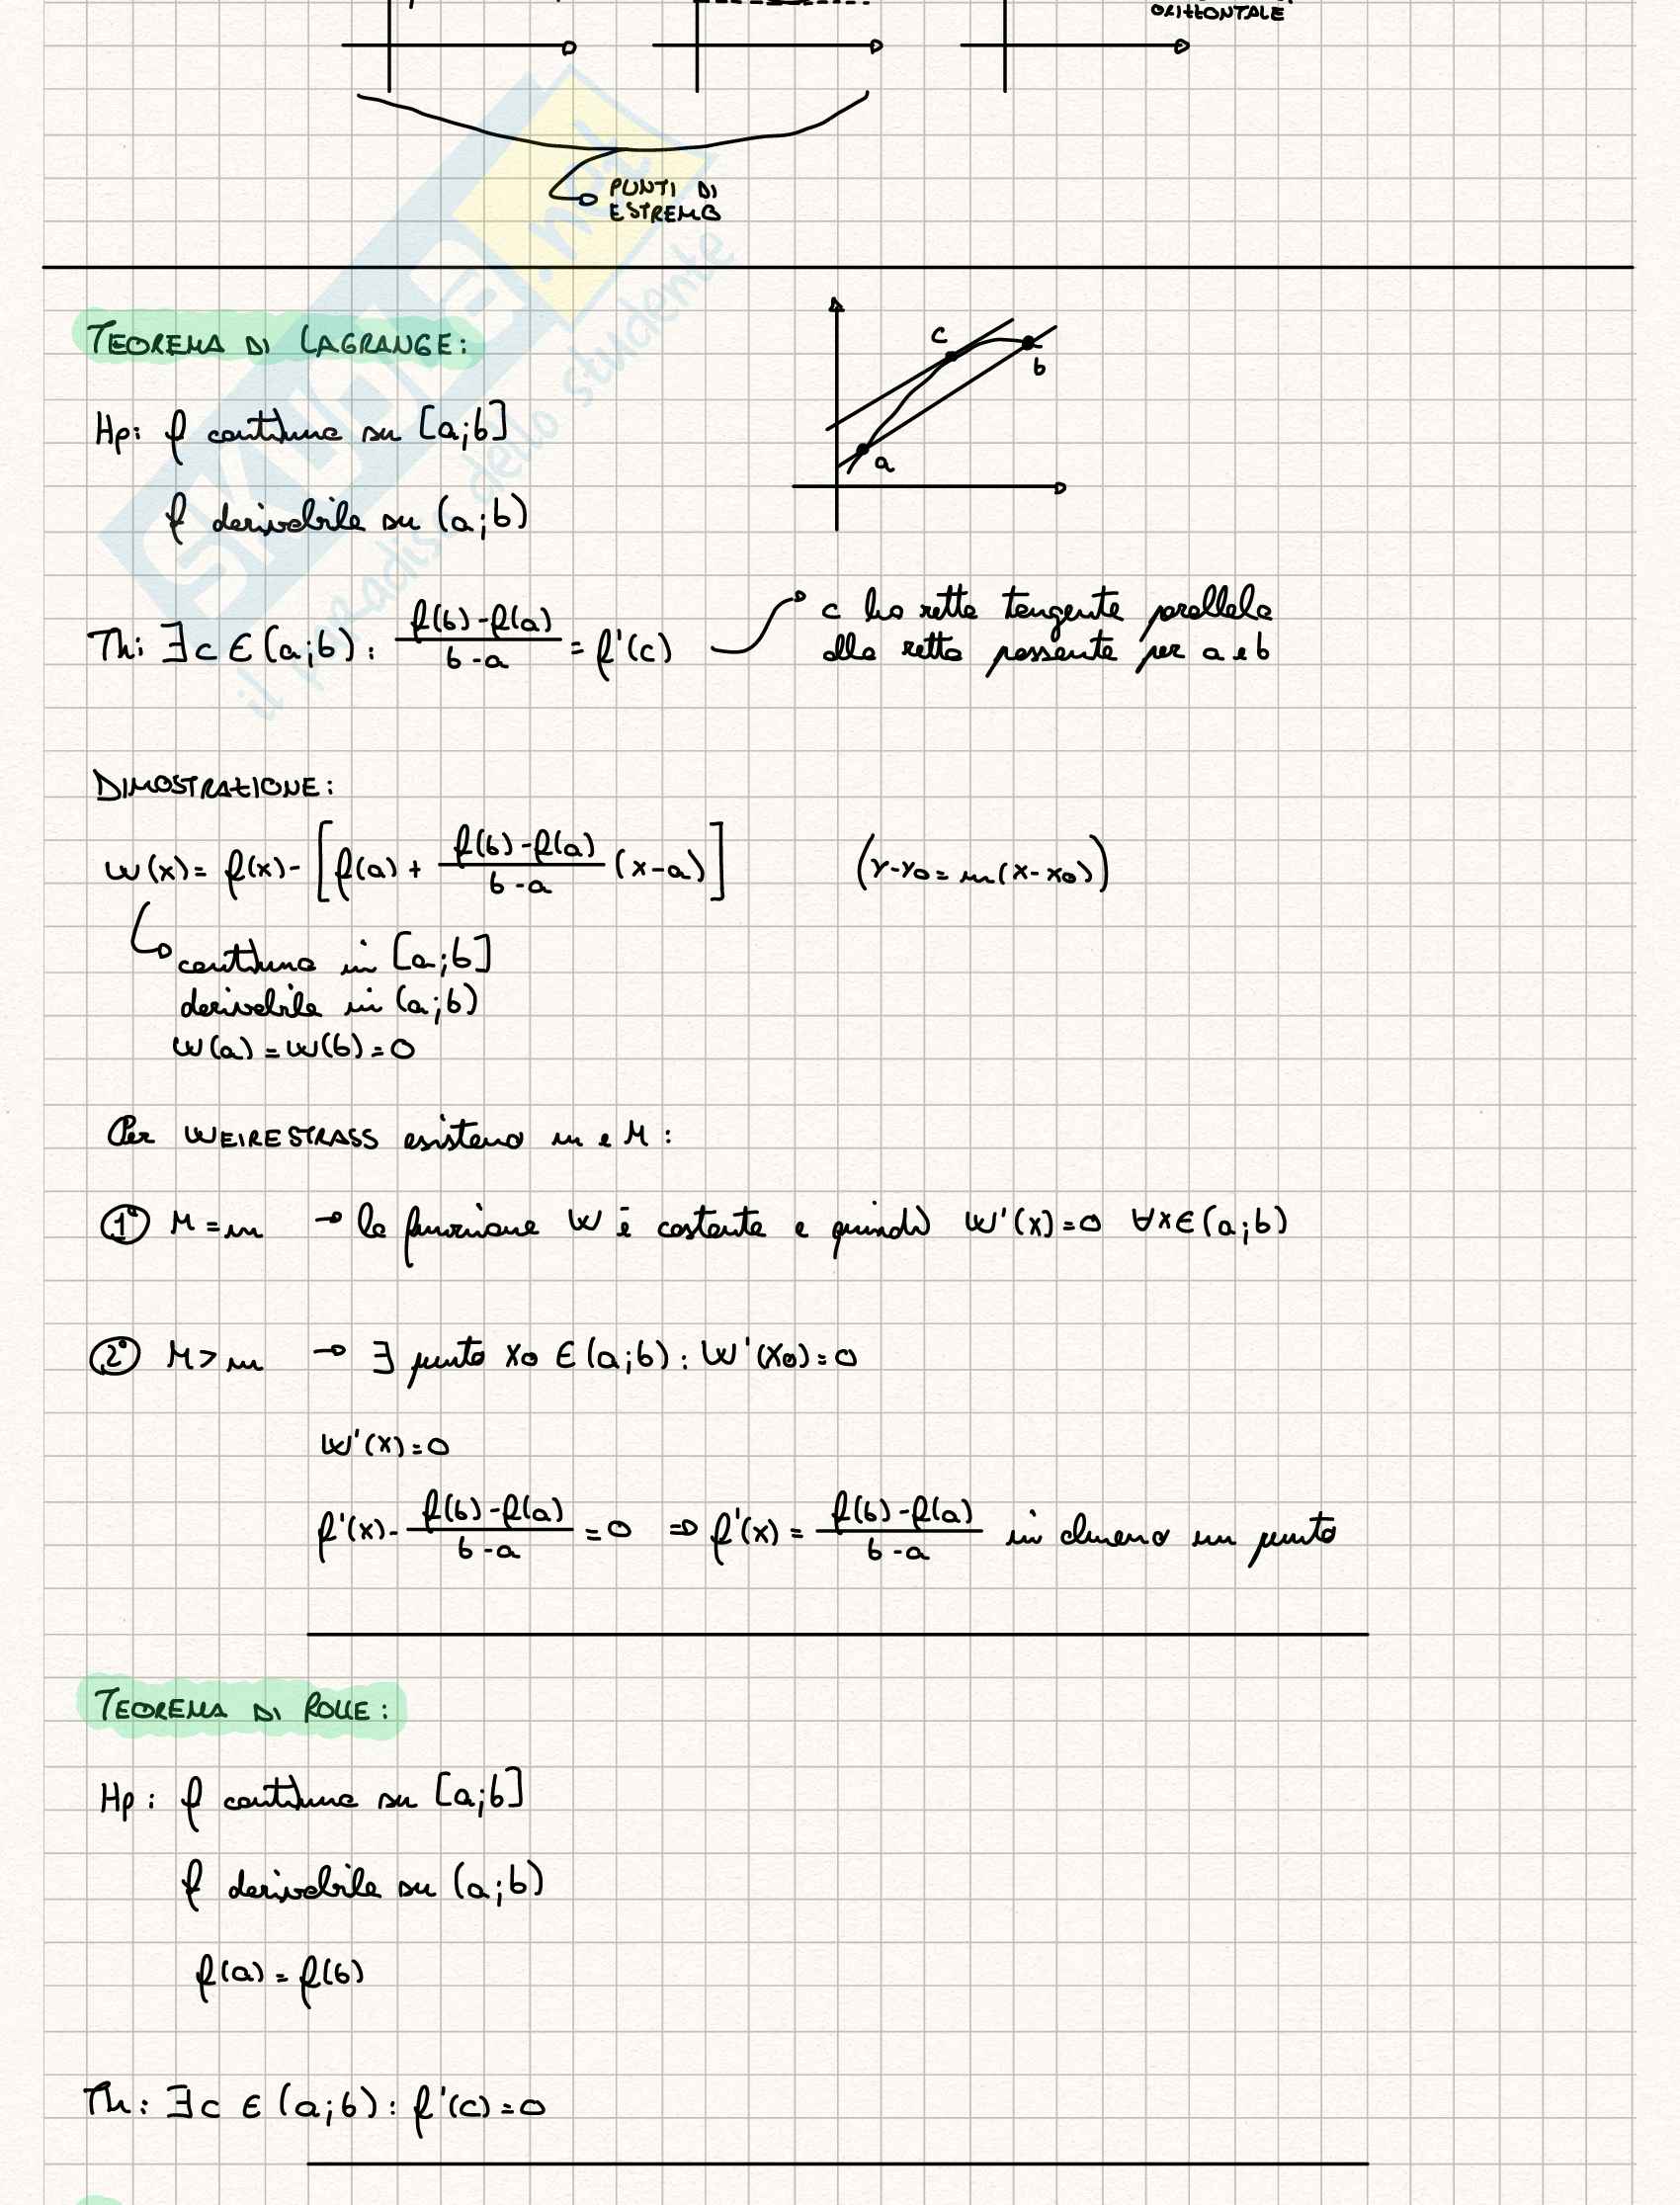 ORIZZONTALE
PUNTI DI
ESTREMO
TEOREMA DI LAGRANGE:
c
b
a
Hp: f continua su [a;b]
f derivabile su (a;b)
Th: ∃ c ∈ (a;b): (f(b)-f(a))/(b-a) = f'(c)
c ha retta tangente parallela
alla retta passante per a e b
DIMOSTRAZIONE:
w(x) = f(x) - [f(a) + (f(b)-f(a))/(b-a) (x-a)] (y-y0 = m(x-x0))
continua in [a;b]
derivabile in (a;b)
w(a) = w(b) = 0
Per WEIRESTRASS esistono m e M:
1° M = m → la funzione w è costante e quindi w'(x) = 0 ∀x ∈ (a;b)
2° M > m → ∃ punto x0 ∈ (a;b): w'(x0) = 0
w'(x) = 0
f'(x) - (f(b)-f(a))/(b-a) = 0 ⇒ f'(x) = (f(b)-f(a))/(b-a) in almeno un punto
TEOREMA DI ROLLE:
Hp: f continua su [a;b]
f derivabile su (a;b)
f(a) = f(b)
Th: ∃ c ∈ (a;b): f'(c) = 0
SKUOLA.net
il paradiso dello studente